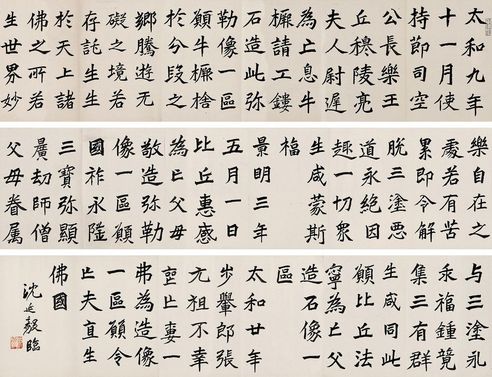 太和九年
十一月使
持節司空
公長樂王
丘穆陵亮
夫人尉遲
為亡息牛
橛請工鏤
石造此弥
勒像一區
願牛橛捨
於分段之
郷騰遊无
礙之境若
存託生生
於天上諸
佛之所若
生世界妙
樂自在之
處若有苦
累即令解
脫三塗惡
道永絕因
趣一切眾
生咸蒙斯
福
景明三年
五月一日
比丘惠感
為亡父母
敬造弥勒
像一區願
國祚永隆
三寶弥顯
廣劫師僧
父母眷属
与三塗永
乖福鍾竟
集三有群
生咸同此
願比丘法
寧為亡父
造石像一
區
太和廿年
步轝郎張
元祖不幸
亡妻一
弗為造像
一區願令
亡夫直生
佛國
沈延毅臨